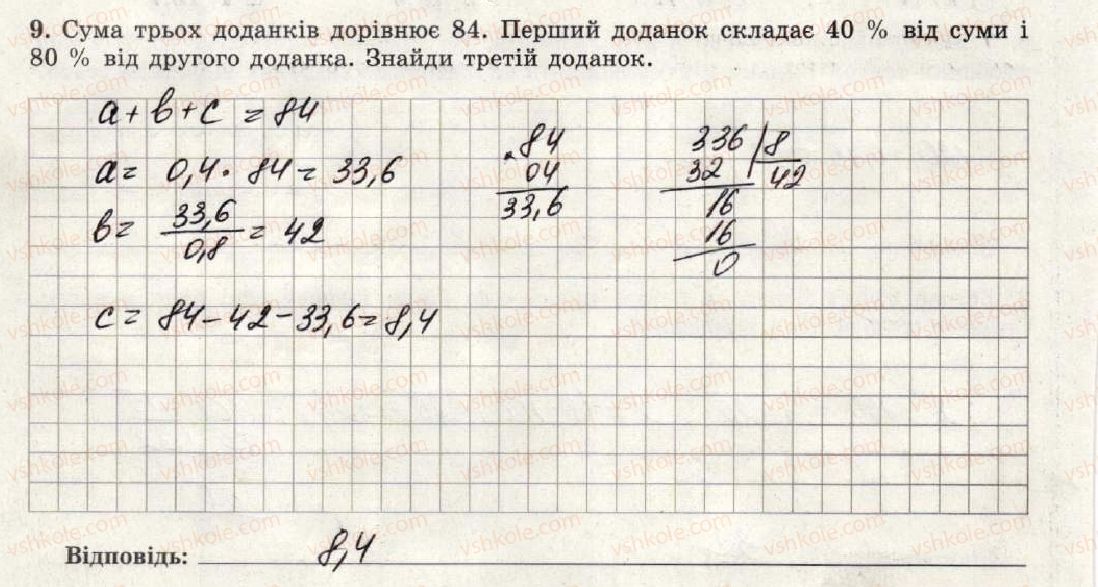 9. Сума трьох доданків дорівнює 84. Перший доданок складає 40 % від суми і
80 % від другого доданка. Знайди третій доданок.
a + b + c = 84
a = 0,4 · 84 = 33,6
b = 33,6 / 0,8 = 42
c = 84 - 42 - 33,6 = 8,4
× 84
04
33,6
336 | 8
32 42
16
16
0
Відповідь: 8,4
vshkole.com